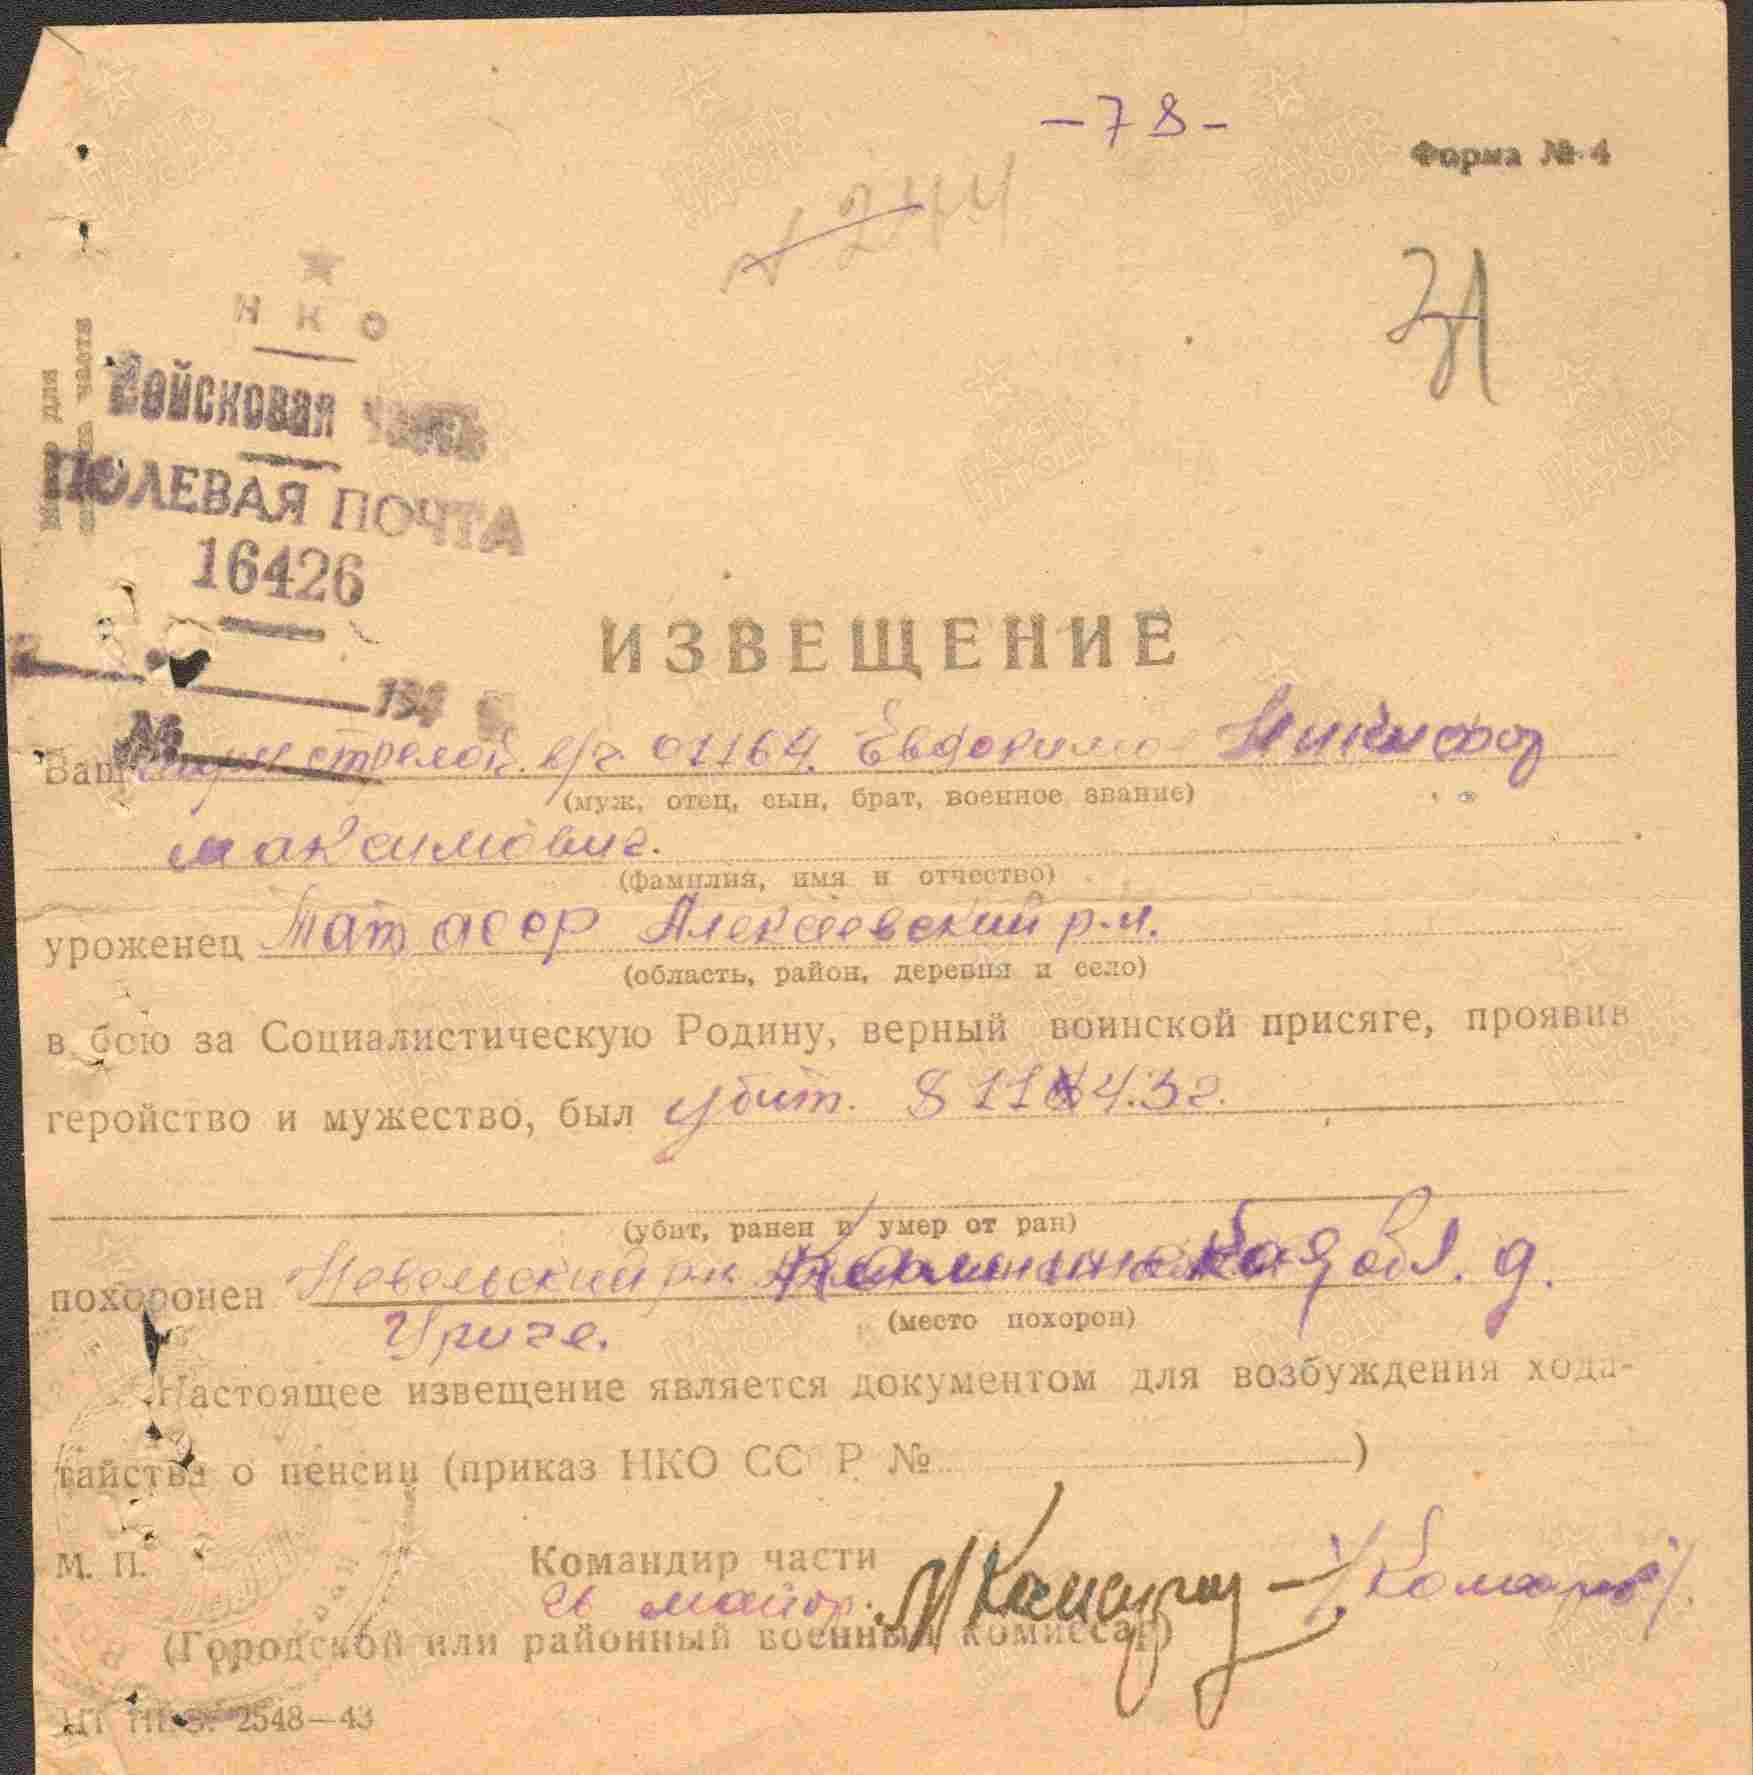 -78-
Форма № 4
244
31
Место для
штампа части
НКО
Войсковая часть
ПОЛЕВАЯ ПОЧТА
16426
194
№
ИЗВЕЩЕНИЕ
Ваш стрелок. в/ч. 01164. Евдокимов Никифор
(муж, отец, сын, брат, военное звание)
Максимович.
(фамилия, имя и отчество)
уроженец Тат АССР Алексеевский р-н.
(область, район, деревня и село)
в бою за Социалистическую Родину, верный воинской присяге, проявив
геройство и мужество, был убит. 8 11 43г.
(убит, ранен и умер от ран)
похоронен Невельский р-н Калининская обл. д.
(место похорон)
Уриче.
Настоящее извещение является документом для возбуждения хода-
тайства о пенсии (приказ НКО СССР №)
М. П.
Командир части
гв майор. /Комаров/.
(Городской или районный военный комиссар)
2548—43